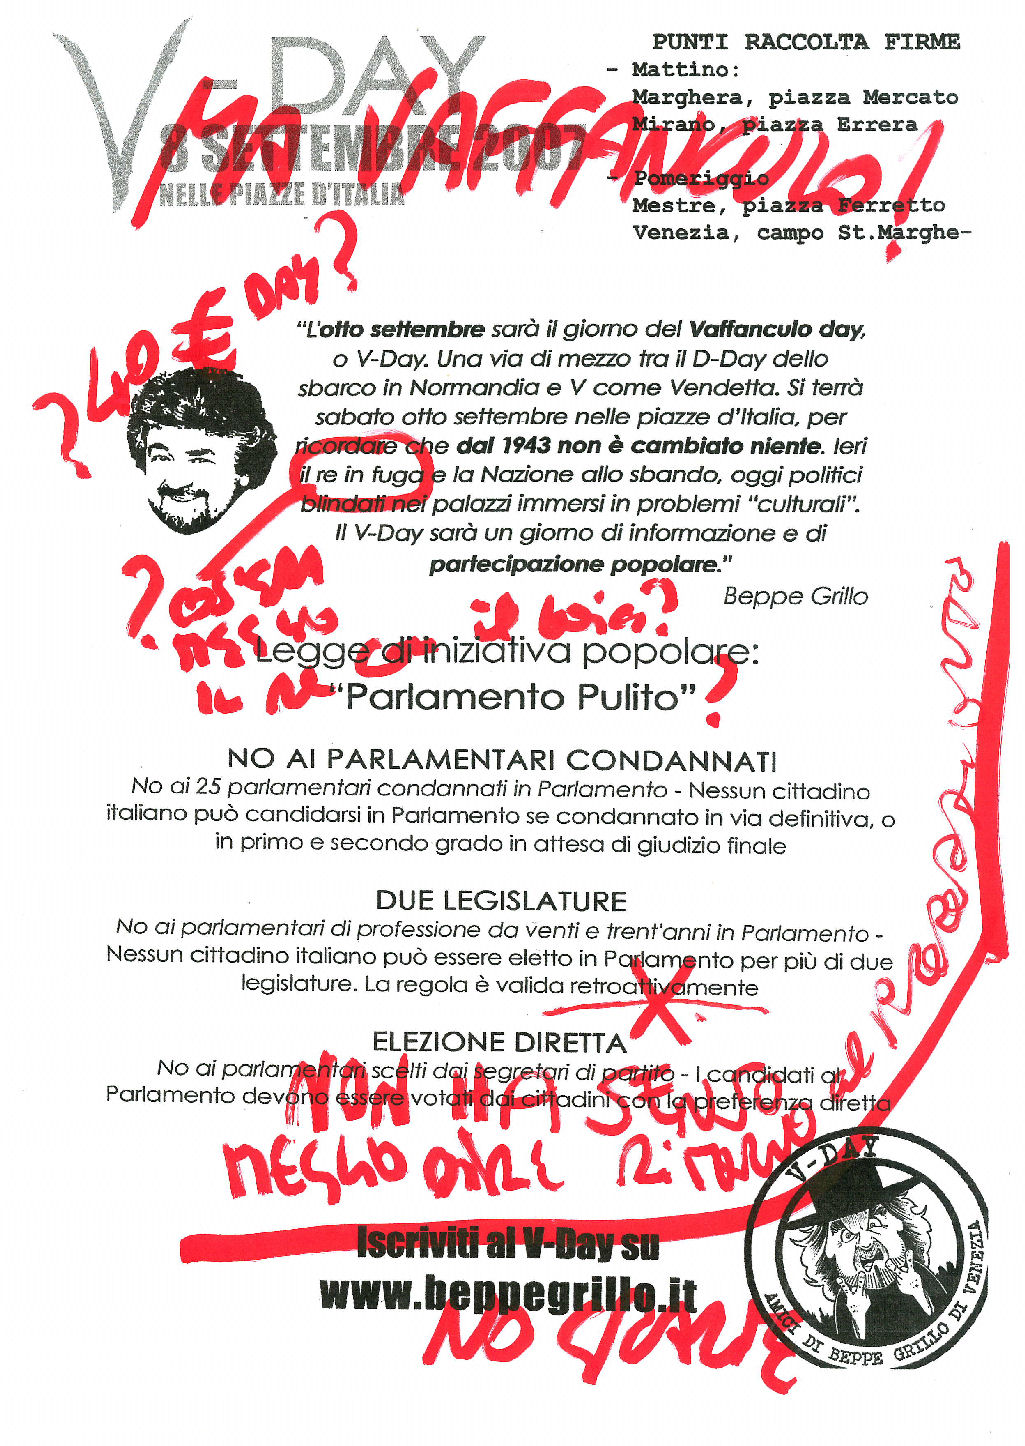 V-DAY
8 SETTEMBRE 2007
NELLE PIAZZE D'ITALIA
PUNTI RACCOLTA FIRME
- Mattino:
Marghera, piazza Mercato
Mirano, piazza Errera
- Pomeriggio
Mestre, piazza Ferretto
Venezia, campo St.Marghe-
MA VAFFANCULO!
? E DAY?
"L'otto settembre sarà il giorno del Vaffanculo day,
o V-Day. Una via di mezzo tra il D-Day dello
sbarco in Normandia e V come Vendetta. Si terrà
sabato otto settembre nelle piazze d'Italia, per
ricordare che dal 1943 non è cambiato niente. Ieri
il re in fuga e la Nazione allo sbando, oggi politici
blindati nei palazzi immersi in problemi "culturali".
Il V-Day sarà un giorno di informazione e di
partecipazione popolare."
Beppe Grillo
?
MEGLIO
IL RE con il boia?
Legge di iniziativa popolare:
"Parlamento Pulito"
?
NO AI PARLAMENTARI CONDANNATI
No ai 25 parlamentari condannati in Parlamento - Nessun cittadino
italiano può candidarsi in Parlamento se condannato in via definitiva, o
in primo e secondo grado in attesa di giudizio finale
DUE LEGISLATURE
No ai parlamentari di professione da venti e trent'anni in Parlamento -
Nessun cittadino italiano può essere eletto in Parlamento per più di due
legislature. La regola è valida retroattivamente
ELEZIONE DIRETTA
No ai parlamentari scelti dai segretari di partito - I candidati al
Parlamento devono essere votati dai cittadini con la preferenza diretta
NON HA SENSO
MEGLIO DIRE
al
Iscriviti al V-Day su
www.beppegrillo.it
NO
V-DAY
AMICI DI BEPPE GRILLO DI VENEZIA